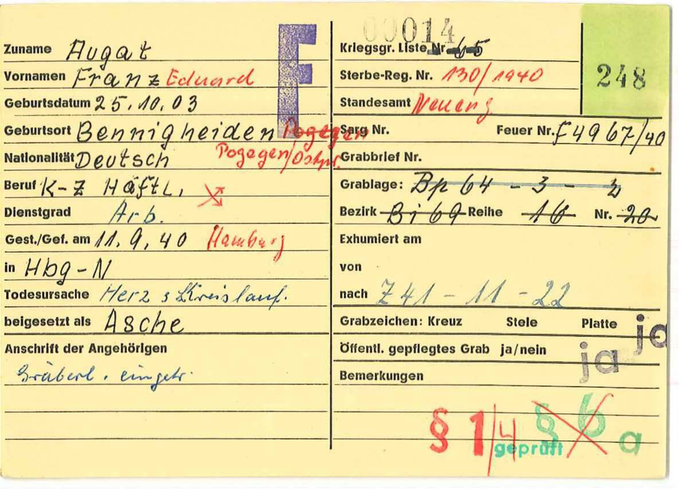 00014
Zuname Augat
Vornamen Franz Eduard
Geburtsdatum 25.10.03
Geburtsort Bennigheiden Pogegen
Pogegen/Ostpr.
Nationalität Deutsch
Beruf K-Z Häftl.
Dienstgrad Arb.
Gest./Gef. am 11.9.40 Hamburg
in Hbg-N
Todesursache Herz s Kreislauf.
beigesetzt als Asche
Anschrift der Angehörigen
Gräberl. eingetr.
F
Kriegsgr. Liste Nr. 45
Sterbe-Reg. Nr. 130/1940
Standesamt Neueng
248
Sarg Nr. Feuer Nr. F4967/40
Grabbrief Nr.
Grablage: Bp 64 - 3 - 2
Bezirk Bi 69 Reihe 16 Nr. 20
Exhumiert am
von
nach Z41 - 11 - 22
Grabzeichen: Kreuz Stele Platte ja
Öffentl. gepflegtes Grab ja/nein ja
Bemerkungen
§ 1/4 § 6 a
geprüft